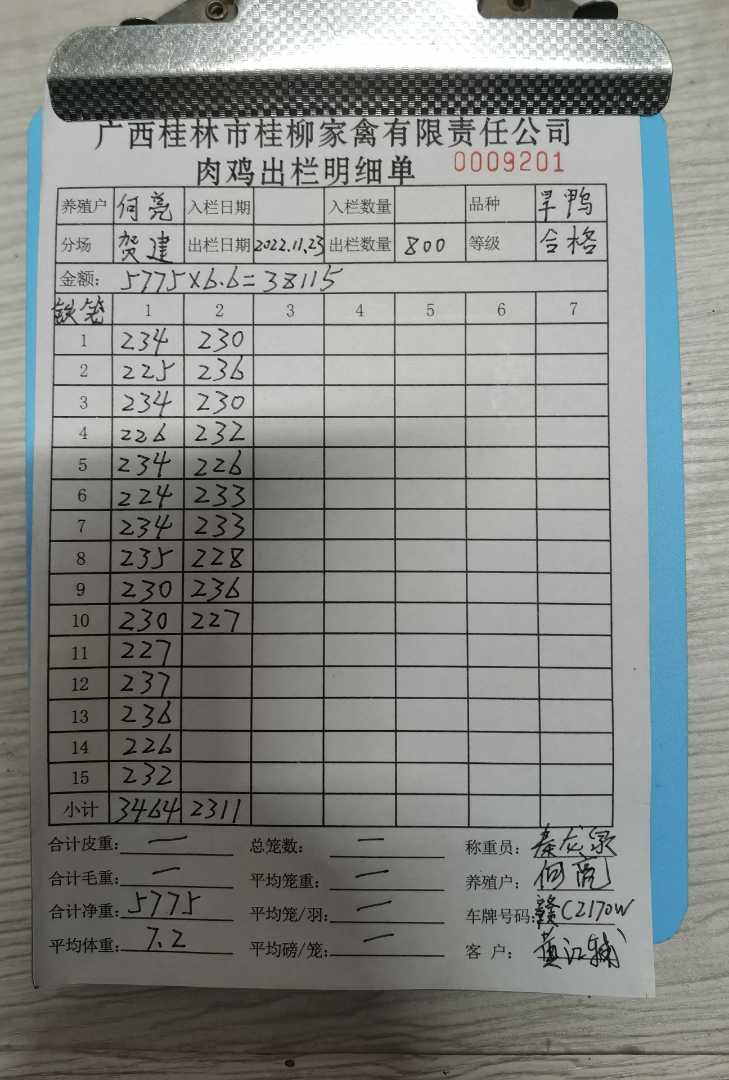 广西桂林市桂柳家禽有限责任公司
肉鸡出栏明细单 0009201
养殖户 何亮 入栏日期 入栏数量 品种 旱鸭
分场 贺建 出栏日期 2022.11.23 出栏数量 800 等级 合格
金额: 5775×6.6=38115
铁笼 1 2 3 4 5 6 7
1 234 230
2 225 236
3 234 230
4 226 232
5 234 226
6 224 233
7 234 233
8 235 228
9 230 236
10 230 227
11 227
12 237
13 236
14 226
15 232
小计 3464 2311
合计皮重: 一 总笼数: 一 称重员: 秦
合计毛重: 一 平均笼重: 一 养殖户: 何亮
合计净重: 5775 平均笼/羽: 一 车牌号码: 赣C2170W
平均体重: 7.2 平均磅/笼: 一 客户: 黄江